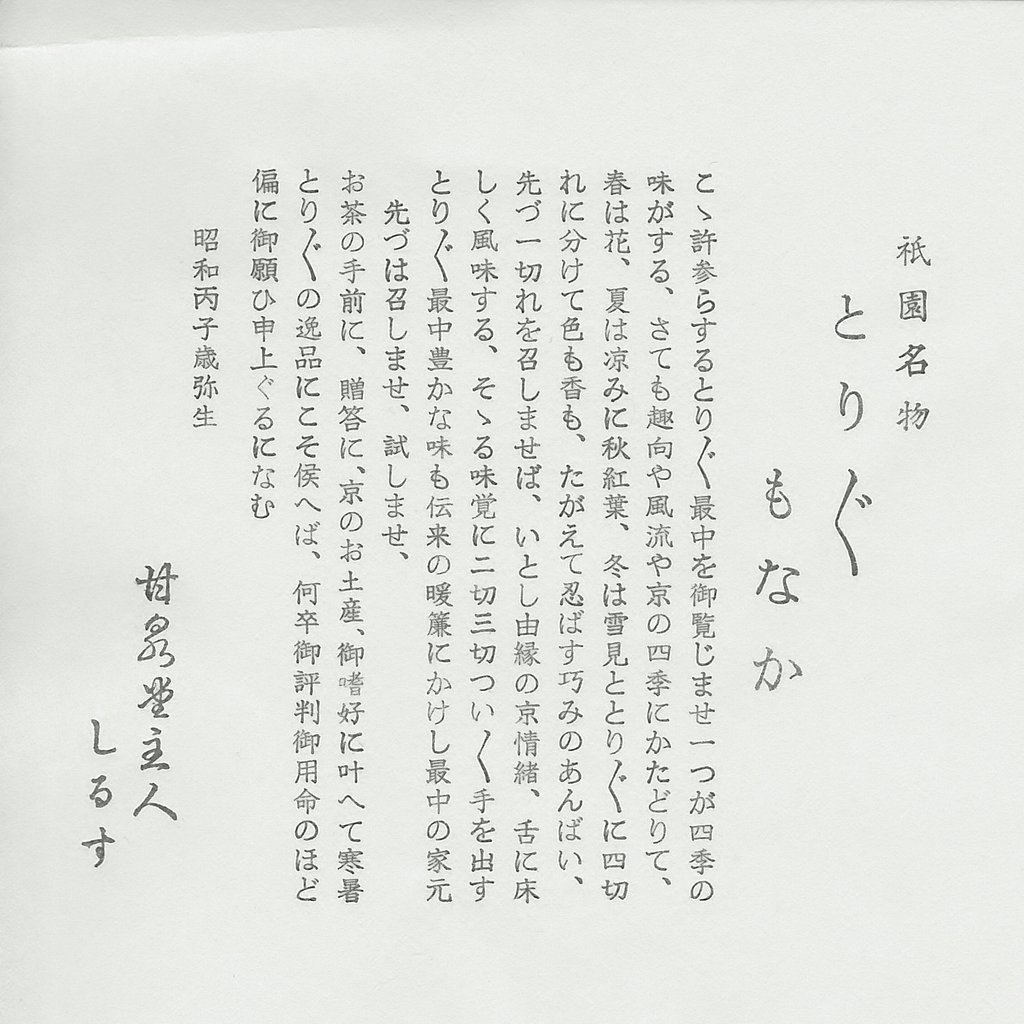 祇園名物
とり〴〵
もなか
こゝ許参らするとり〴〵最中を御覧じませ一つが四季の
味がする、さても趣向や風流や京の四季にかたどりて、
春は花、夏は凉みに秋紅葉、冬は雪見ととり〴〵に四切
れに分けて色も香も、たがえて忍ばす巧みのあんばい、
先づ一切れを召しませば、いとし由縁の京情緒、舌に床
しく風味する、そゝる味覚に二切三切つい〳〵手を出す
とり〴〵最中豊かな味も伝来の暖簾にかけし最中の家元
先づは召しませ、試しませ、
お茶の手前に、贈答に、京のお土産、御嗜好に叶へて寒暑
とり〴〵の逸品にこそ侯へば、何卒御評判御用命のほど
偏に御願ひ申上ぐるになむ
昭和丙子歳弥生
甘泉堂主人
しるす